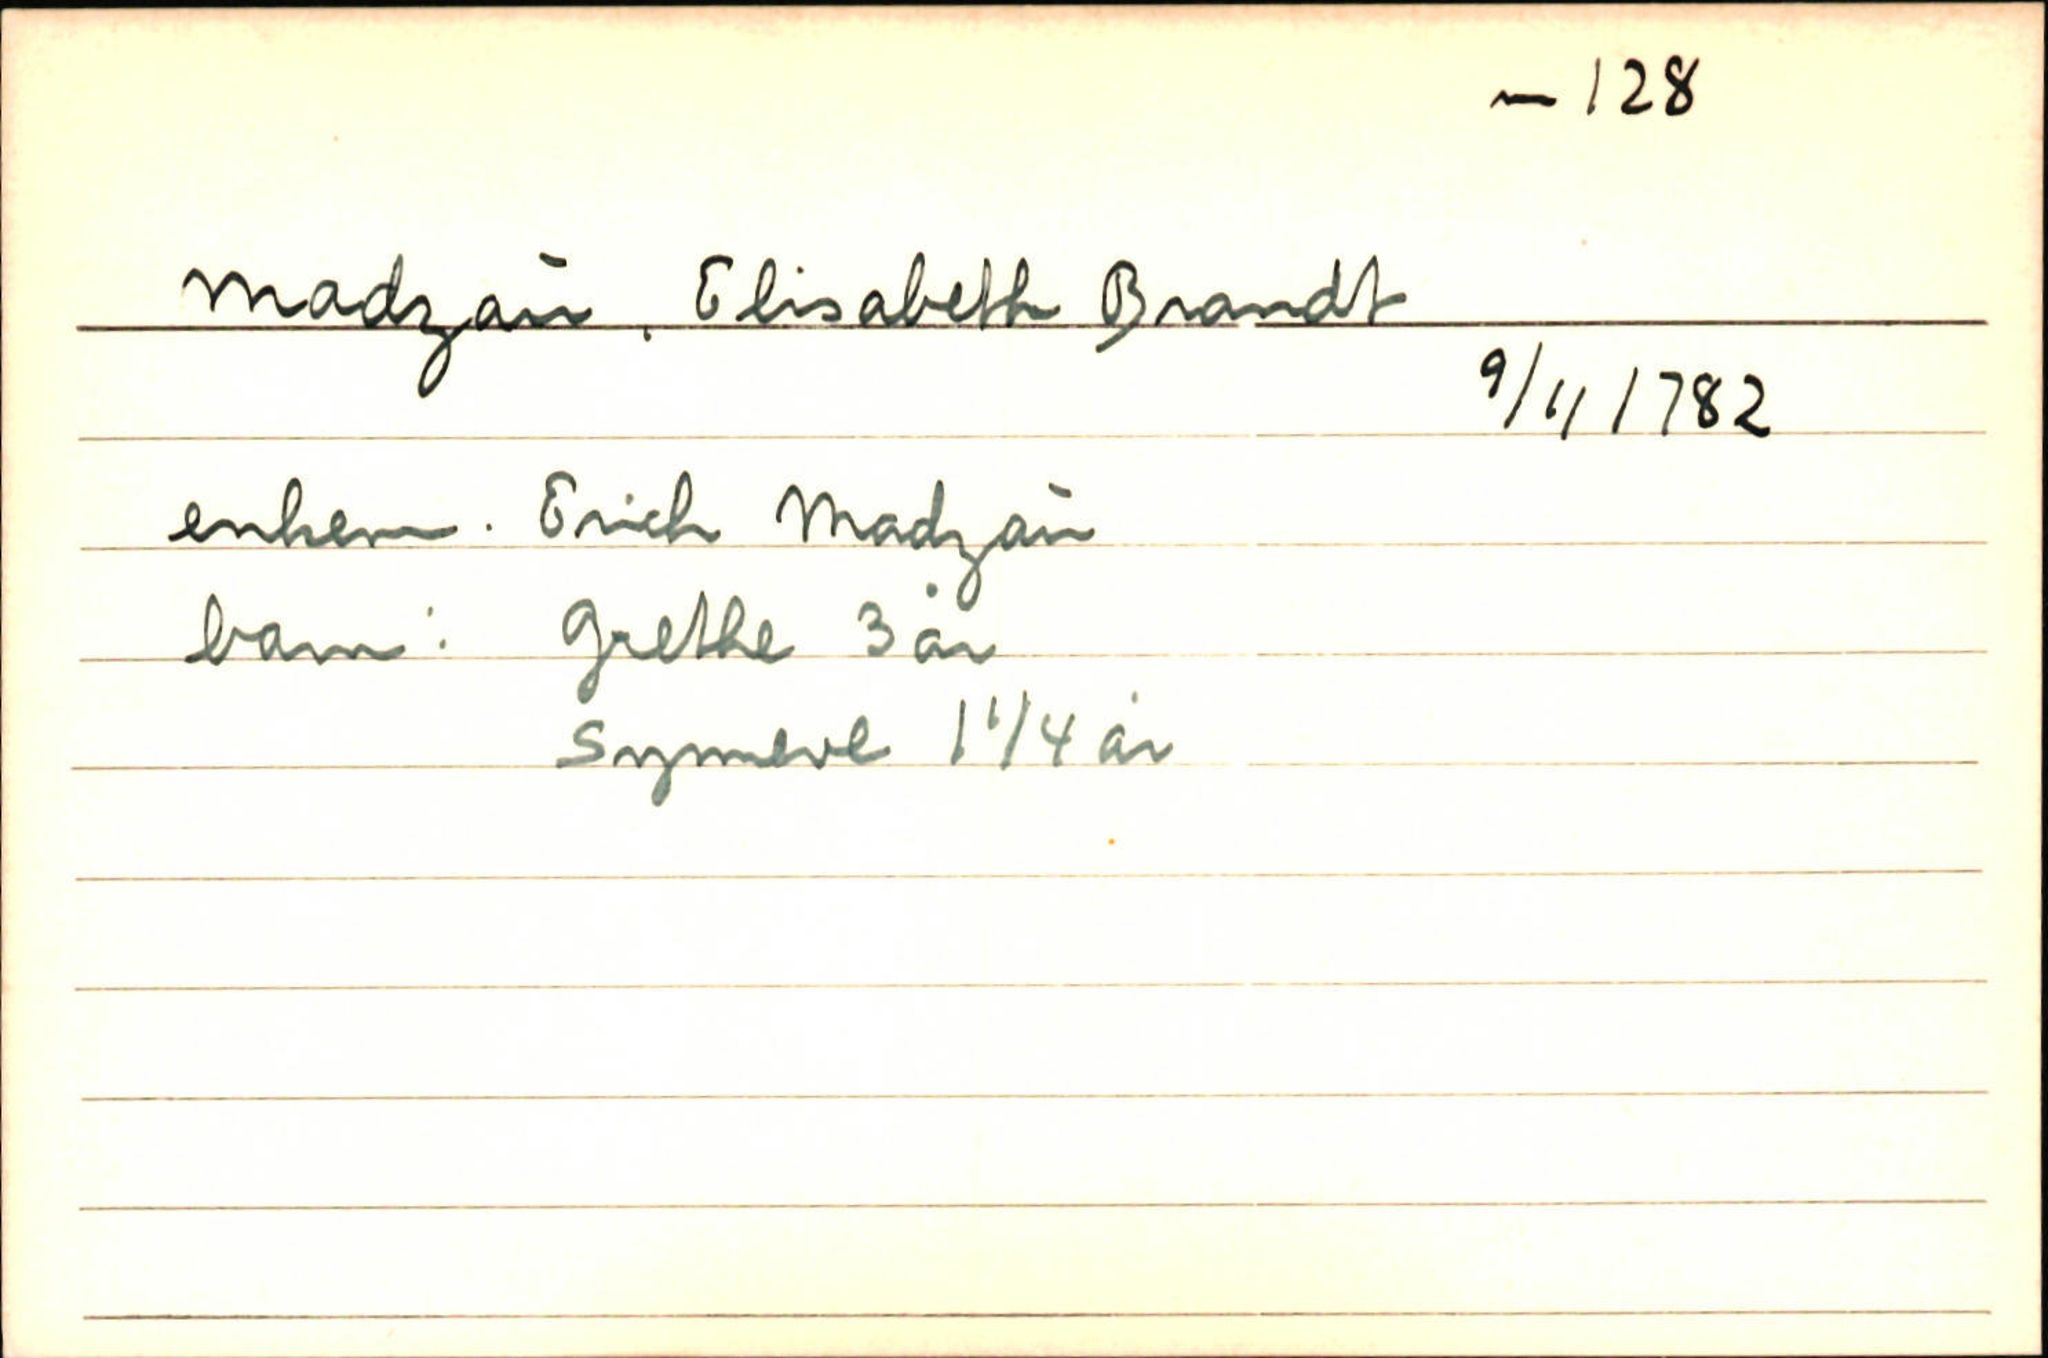 128
Madzau, Elisabeth Brandt
9/11 1782
enkem. Erich Madzau
barn: Grethe 3 år
Synneve 1 1/4 år